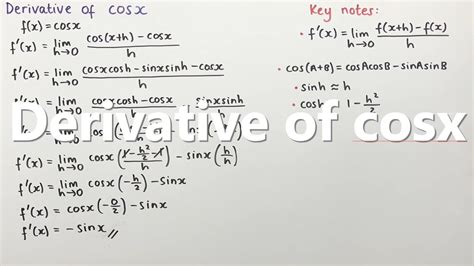 Derivative of cosx
f(x) = cosx
f'(x) = lim h→0 cos(x+h) - cosx / h
f'(x) = lim h→0 cosxcosh - sinxsinh - cosx / h
f'(x) = lim h→0 cosxcosh - cosx / h - sinxsinh / h
f'(x) = lim h→0 cosx (1 - h²/2 - 1 / h) - sinx (h/h)
f'(x) = lim h→0 cosx (-h/2) - sinx
f'(x) = cosx (-0/2) - sinx
f'(x) = - sinx //
Key notes:
• f'(x) = lim h→0 f(x+h) - f(x) / h
• cos(A+B) = cosAcosB - sinAsinB
• sinh ≈ h
• cosh 1 - h²/2
Derivative of cosx